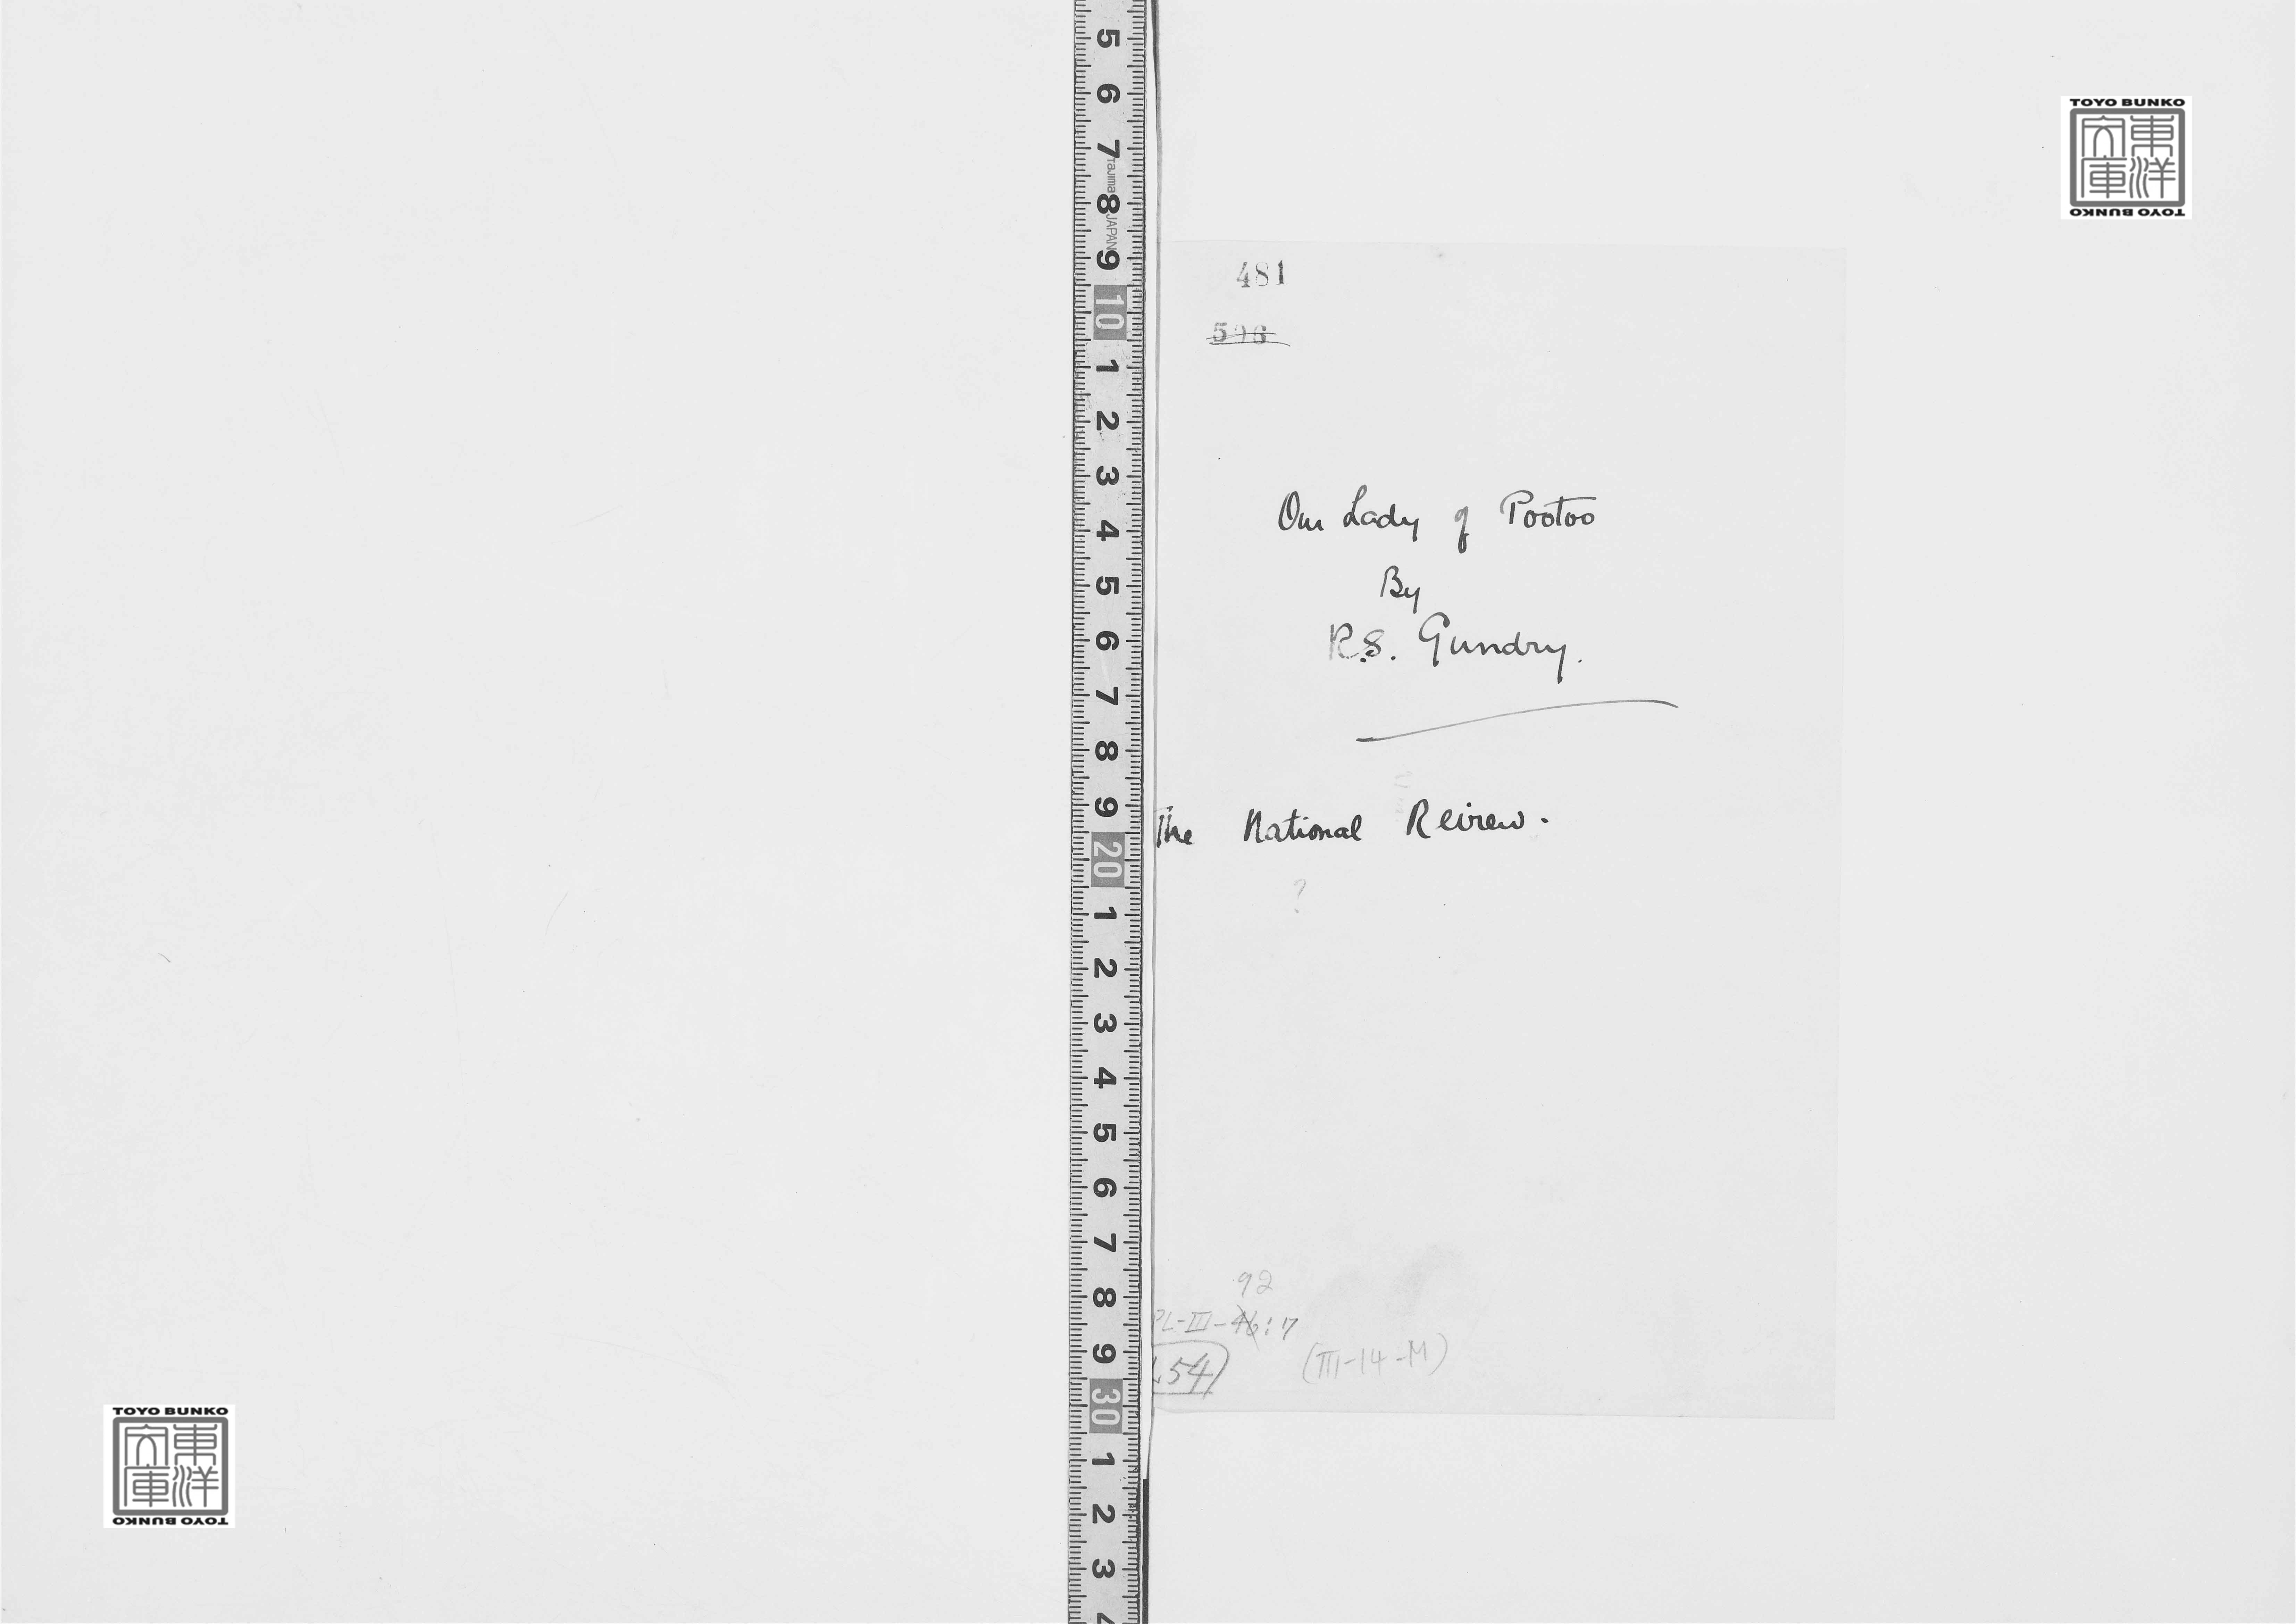 TOYO BUNKO
東洋
文庫
TOYO BUNKO
481
Our Lady of Pootoo
By
R.S. Gundry.
The National Review.
?
92
PL-III-46:7
54
(III-14-M)
5 6 7 8 9 10 1 2 3 4 5 6 7 8 9 20 1 2 3 4 5 6 7 8 9 30 1 2 3 4
Tajima JAPAN
TOYO BUNKO
東洋
文庫
TOYO BUNKO